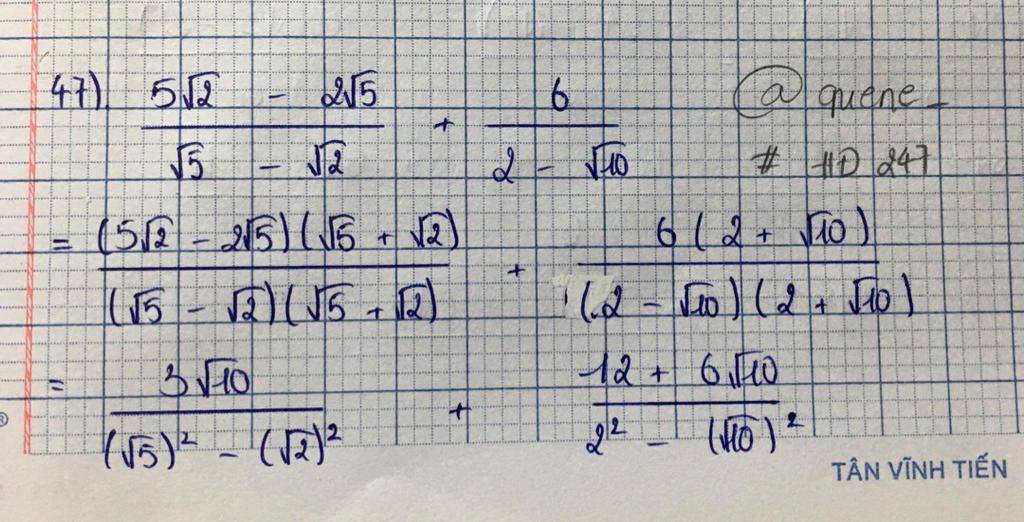 47) (5√2 - 2√5)/(√5 - √2) + 6/(2 - √10)
@quene_
# HD 247
= (5√2 - 2√5)(√5 + √2)/(√5 - √2)(√5 + √2) + 6(2 + √10)/(2 - √10)(2 + √10)
= 3√10/((√5)² - (√2)²) + (12 + 6√10)/(2² - (√10)²)
TÂN VĨNH TIẾN